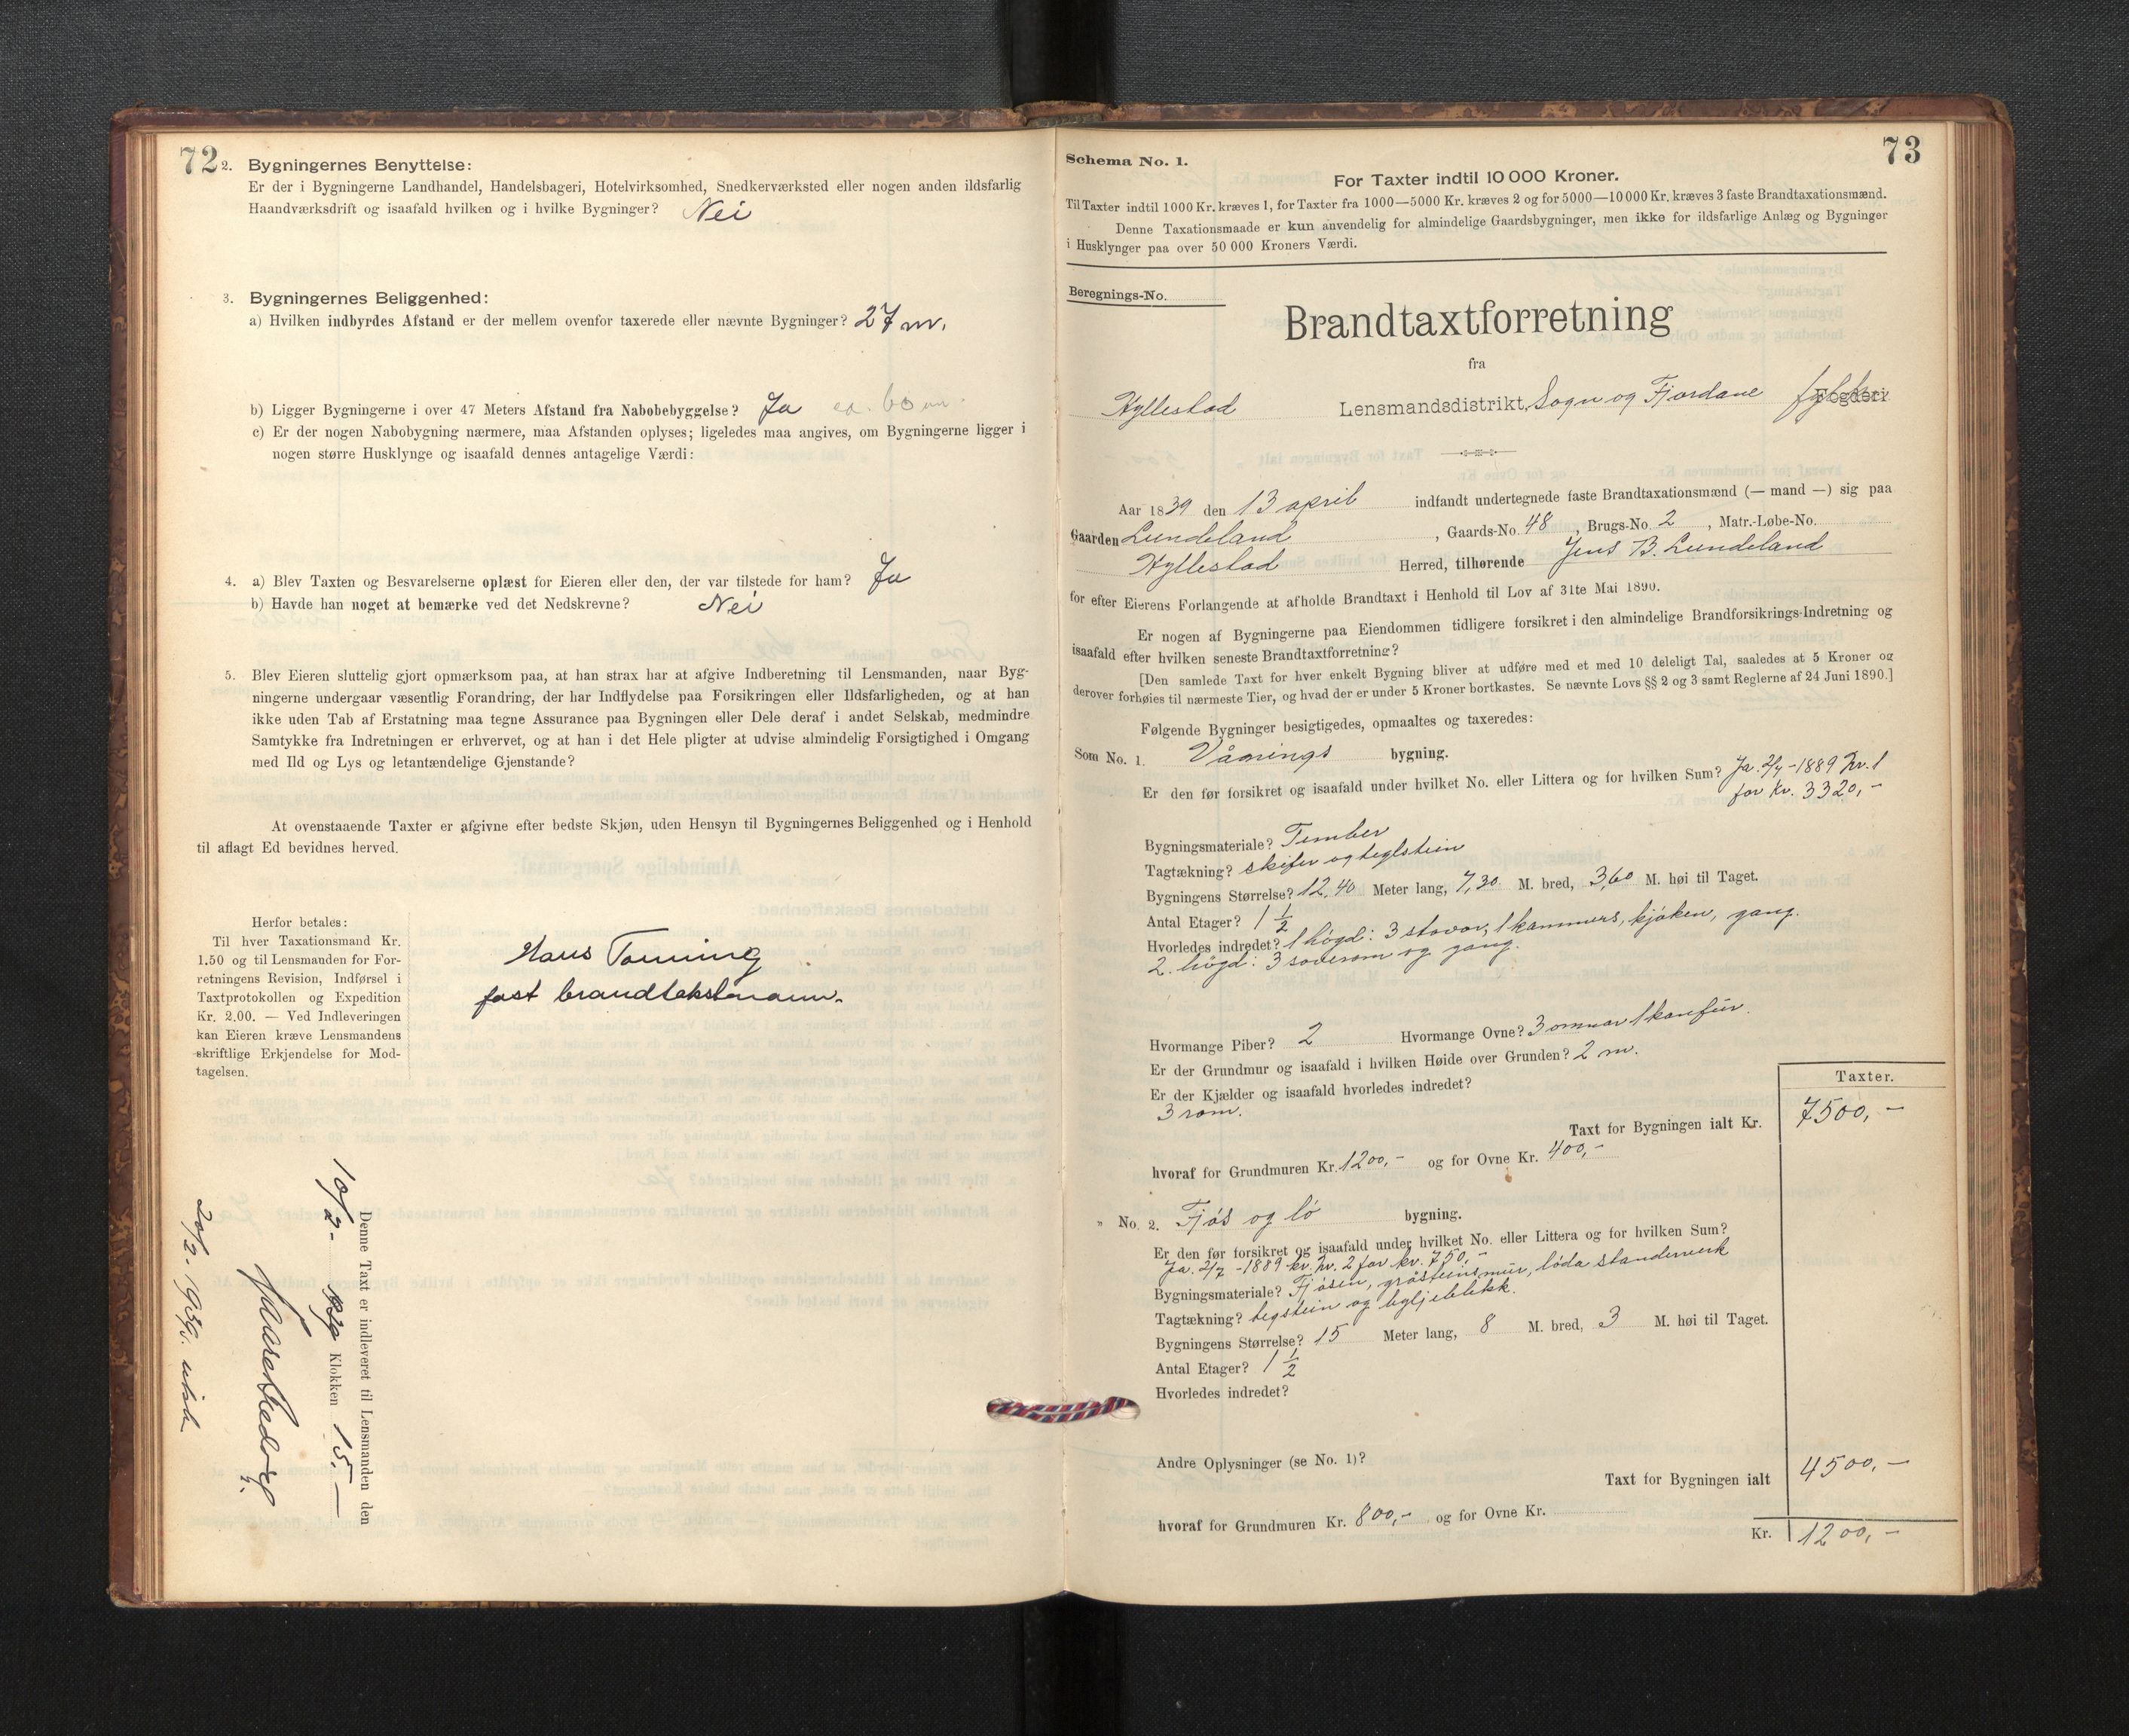 72
2. Bygningernes Benyttelse:
Er der i Bygningerne Landhandel, Handelsbageri, Hotelvirksomhed, Snedkerværksted eller nogen anden ildsfarlig
Haandværksdrift og isaafald hvilken og i hvilke Bygninger? Nei
3. Bygningernes Beliggenhed:
a) Hvilken indbyrdes Afstand er der mellem ovenfor taxerede eller nævnte Bygninger? 27 m.
b) Ligger Bygningerne i over 47 Meters Afstand fra Nabobebyggelse? Ja ca. 60 m.
c) Er der nogen Nabobygning nærmere, maa Afstanden oplyses; ligeledes maa angives, om Bygningerne ligger i
nogen større Husklynge og isaafald dennes antagelige Værdi:
4. a) Blev Taxten og Besvarelserne oplæst for Eieren eller den, der var tilstede for ham? Ja
b) Havde han noget at bemærke ved det Nedskrevne? Nei
5. Blev Eieren sluttelig gjort opmærksom paa, at han strax har at afgive Indberetning til Lensmanden, naar Byg-
ningerne undergaar væsentlig Forandring, der har Indflydelse paa Forsikringen eller Ildsfarligheden, og at han
ikke uden Tab af Erstatning maa tegne Assurance paa Bygningen eller Dele deraf i andet Selskab, medmindre
Samtykke fra Indretningen er erhvervet, og at han i det Hele pligter at udvise almindelig Forsigtighed i Omgang
med Ild og Lys og letantændelige Gjenstande?
At ovenstaaende Taxter er afgivne efter bedste Skjøn, uden Hensyn til Bygningernes Beliggenhed og i Henhold
til aflagt Ed bevidnes herved.
Herfor betales:
Til hver Taxationsmand Kr.
1.50 og til Lensmanden for For-
retningens Revision, Indførsel i
Taxtprotokollen og Expedition
Kr. 2.00. — Ved Indleveringen
kan Eieren kræve Lensmandens
skriftlige Erkjendelse for Mod-
tagelsen.
Hans
fast brandtakstmann.
Denne Taxt er indleveret til Lensmanden den
10/2- 1939 Klokken 15.—
20/2- 1939.
73
Schema No. 1.
For Taxter indtil 10 000 Kroner.
Til Taxter indtil 1000 Kr. kræves 1, for Taxter fra 1000—5000 Kr. kræves 2 og for 5000—10 000 Kr. kræves 3 faste Brandtaxationsmænd.
Denne Taxationsmaade er kun anvendelig for almindelige Gaardsbygninger, men ikke for ildsfarlige Anlæg og Bygninger
i Husklynger paa over 50 000 Kroners Værdi.
Beregnings-No.
Brandtaxtforretning
fra
Hyllestad Lensmandsdistrikt, Sogn og Fjordane fylke Fogderi
Aar 1839 den 13 april indfandt undertegnede faste Brandtaxationsmænd (— mand —) sig paa
Gaarden Lundeland, Gaards-No. 48, Brugs-No. 2, Matr.-Løbe-No.
Hyllestad Herred, tilhørende Jens B. Lundeland
for efter Eierens Forlangende at afholde Brandtaxt i Henhold til Lov af 31te Mai 1890.
Er nogen af Bygningerne paa Eiendommen tidligere forsikret i den almindelige Brandforsikrings-Indretning og
isaafald efter hvilken seneste Brandtaxtforretning?
[Den samlede Taxt for hver enkelt Bygning bliver at udføre med et med 10 deleligt Tal, saaledes at 5 Kroner og
derover forhøies til nærmeste Tier, og hvad der er under 5 Kroner bortkastes. Se nævnte Lovs §§ 2 og 3 samt Reglerne af 24 Juni 1890.]
Følgende Bygninger besigtigedes, opmaaltes og taxeredes:
Som No. 1. Vånings bygning.
Er den før forsikret og isaafald under hvilket No. eller Littera og for hvilken Sum? Ja. 2/7 - 1889 Nr. 1
for kr. 3320,-
Bygningsmateriale? Timber
Tagtækning? skifer og teglstein
Bygningens Størrelse? 12,40 Meter lang, 7,30 M. bred, 3,60 M. høi til Taget.
Antal Etager? 1 1/2
Hvorledes indredet? 1 høgd: 3 stovor, 1 kammers, kjøken, gang.
2. høgd: 3 soverom og gang.
Hvormange Piber? 2 Hvormange Ovne? 3 omnar 1 komfür.
Er der Grundmur og isaafald i hvilken Høide over Grunden? 2 m.
Er der Kjælder og isaafald hvorledes indredet?
3 rom.
Taxter.
Taxt for Bygningen ialt Kr. 7500,-
hvoraf for Grundmuren Kr. 1200,- og for Ovne Kr. 400,-
" No. 2. Fjøs og lø bygning.
Er den før forsikret og isaafald under hvilket No. eller Littera og for hvilken Sum?
Ja. 2/7 - 1889 kr. Nr. 2 for kr. 750,-
Bygningsmateriale? Fjøsen, gråsteinsmür, løda standerverk
Tagtækning? tegstein og bylgjeblekk.
Bygningens Størrelse? 15 Meter lang, 8 M. bred, 3 M. høi til Taget.
Antal Etager? 1 1/2
Hvorledes indredet?
Andre Oplysninger (se No. 1)?
Taxt for Bygningen ialt 4500,-
hvoraf for Grundmuren Kr. 800,- og for Ovne Kr.
Kr. 1200,-